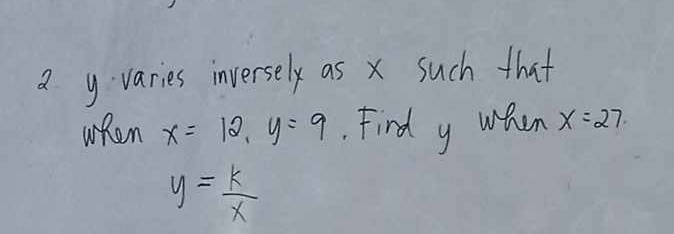 2. y varies inversely as x such that
when x = 12, y = 9. Find y when x = 27.
y = k/x